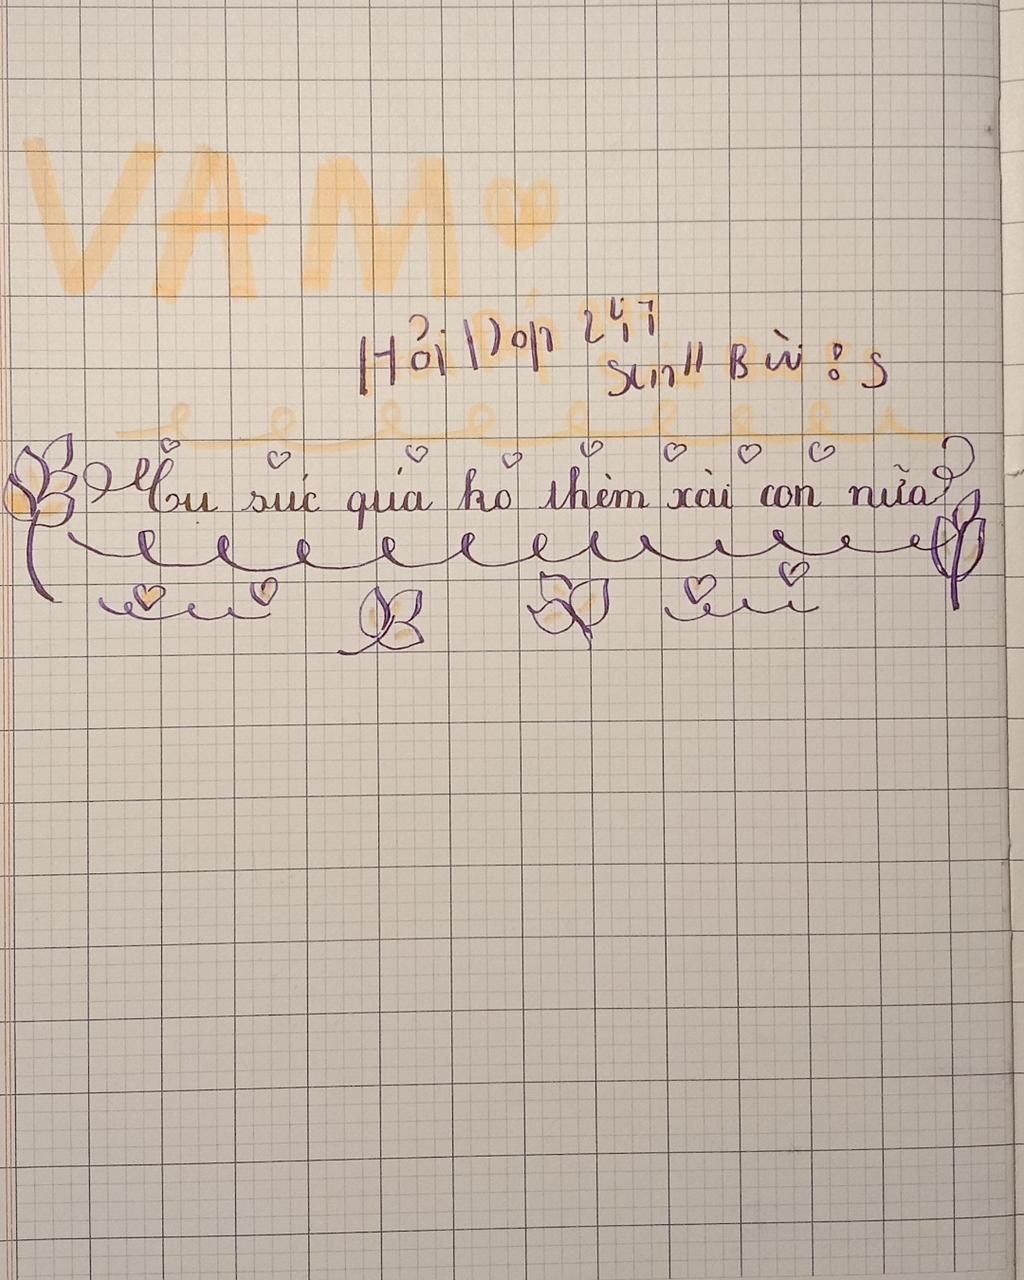 VAM
Hỏi Đáp 247
Bùi : S
sức quá ko thèm xài con nữa?